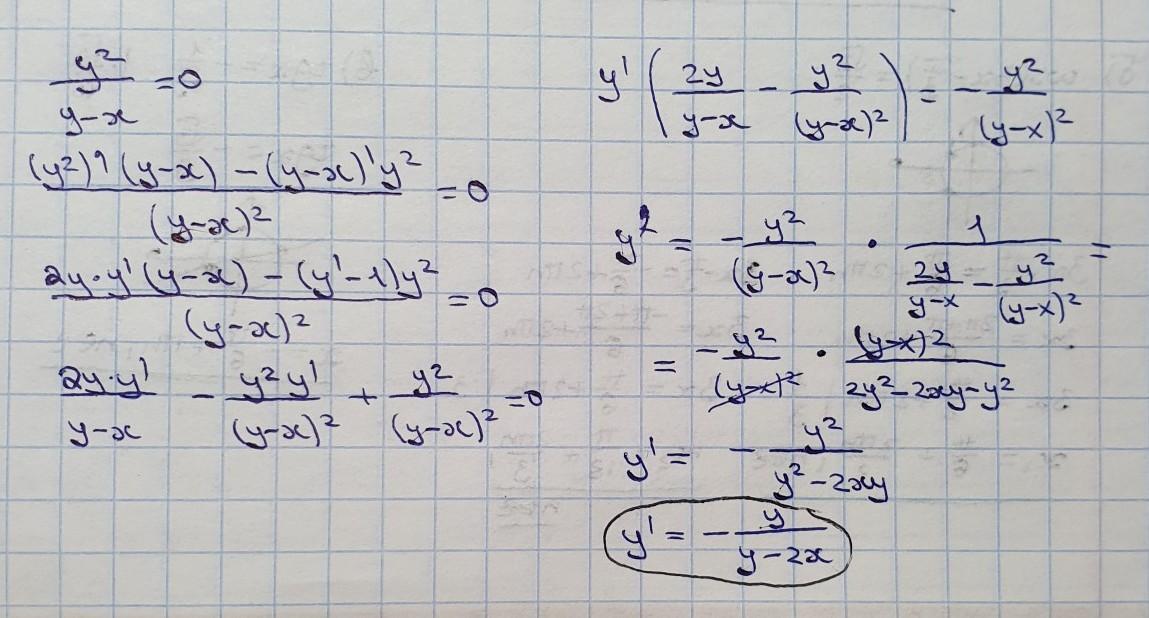 y²/(y-x) = 0
((y²)' (y-x) - (y-x)' y²)/(y-x)² = 0
(2y·y'(y-x) - (y'-1)y²)/(y-x)² = 0
2y·y'/(y-x) - y²y'/(y-x)² + y²/(y-x)² = 0
y' (2y/(y-x) - y²/(y-x)²) = - y²/(y-x)²
y' = - y²/(y-x)² · 1/(2y/(y-x) - y²/(y-x)²) =
= - y²/(y-x)² · (y-x)²/(2y²-2xy-y²)
y' = - y²/(y²-2xy)
y' = - y/(y-2x)